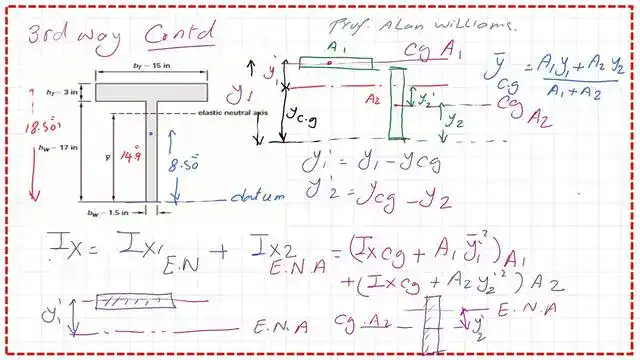 3rd way Contd
Prof. Alan Williams.
b_f = 15 in
h_f = 3 in
elastic neutral axis
18.50"
h_w = 17 in
y
14.9"
8.50"
datum
b_w = 1.5 in
A1
cg A1
y1
y1'
A2
y2'
cg A2
y_c.g
y2
ȳ_cg = (A1 y1 + A2 y2) / (A1 + A2)
y1' = y1 - y_cg
y2' = y_cg - y2
Ix = Ix1 E.N + Ix2 E.N.A = (Ix cg + A1 ȳ1'²) A1
+ (Ix cg + A2 y2'²) A2
y1'
E.N.A
cg A2
E.N.A
y2'